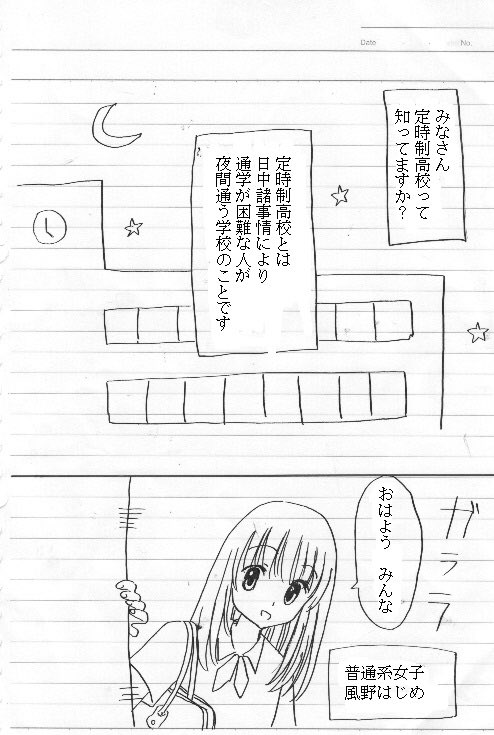 Date
No.
みなさん
定時制高校って
知ってますか?
定時制高校とは
日中諸事情により
通学が困難な人が
夜間通う学校のことです
ガラララ
おはよう みんな
普通系女子
風野はじめ